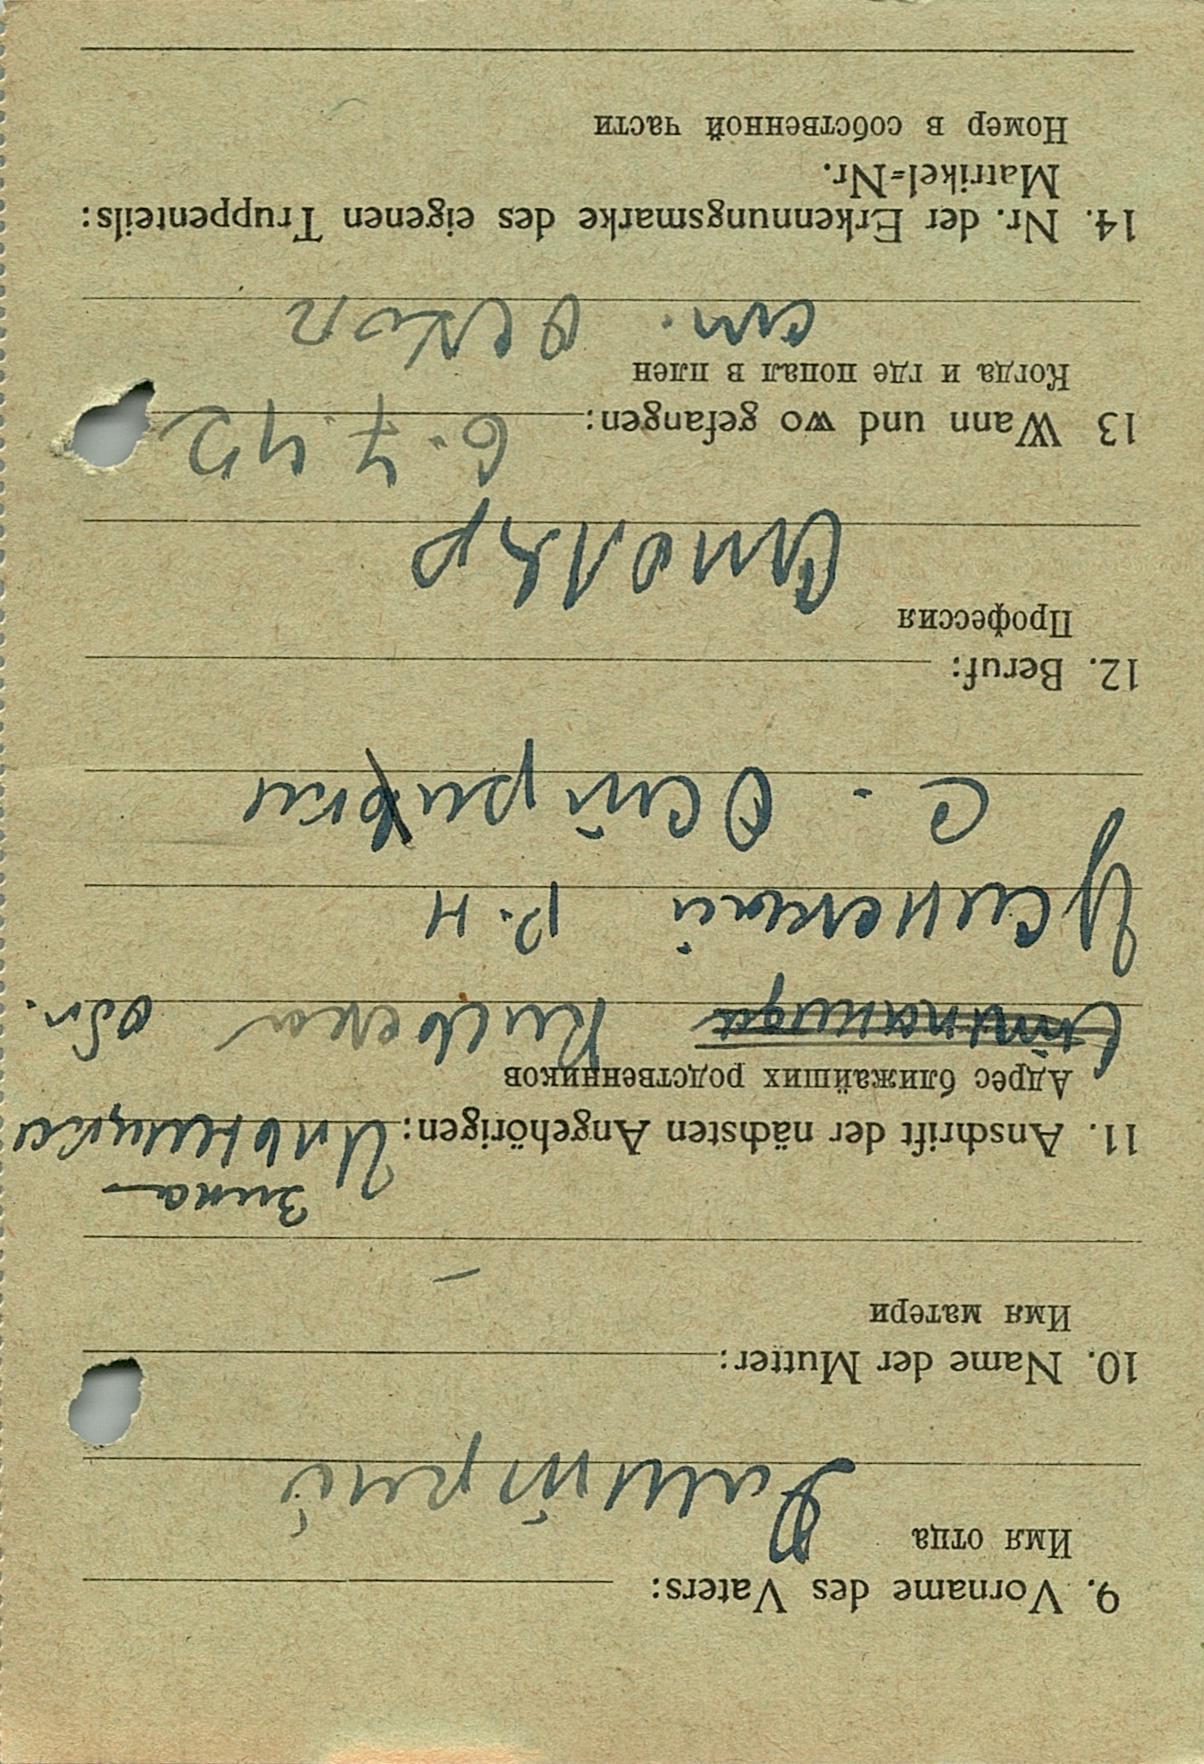 9. Vorname des Vaters:
Имя отца
Дмитрий
10. Name der Mutter:
Имя матери
—
Зина
11. Anschrift der nächsten Angehörigen:
Адрес ближайших родственников
Киевская обл.
р-н
с.
12. Beruf:
Профессия
Столяр
13 Wann und wo gefangen: 6.7.42
Когда и где попал в плен
ст. Оскол
14. Nr. der Erkennungsmarke des eigenen Truppenteils:
Matrikel=Nr.
Номер в собственной части